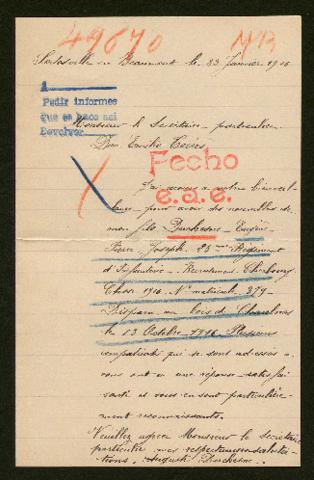 49670 MB
en Beaumont le 23 Janvier 1916
1
Pedir informes
que se hace así
Devolver
Monsieur le Secrétaire particulier
Don Emilio
Fecho
e.a.e.
J'ai recours à votre bienveil
lance pour avoir des nouvelles de
mon fils Duchesne Eugène
Pierre Joseph 25me Régiment
d'Infanterie Recrutement Cherbourg
Classe 1914 No matricule 279
Disparu au bois de
le 13 Octobre Plusieurs
compatriotes qui se sont adressés à
vous ont eu une réponse satisfai
sante et vous en sont particulière
ment reconnaissants.
Veuillez agréer Monsieur le secrétaire
particulier mes respectueuses saluta
tions. Auguste Duchesne